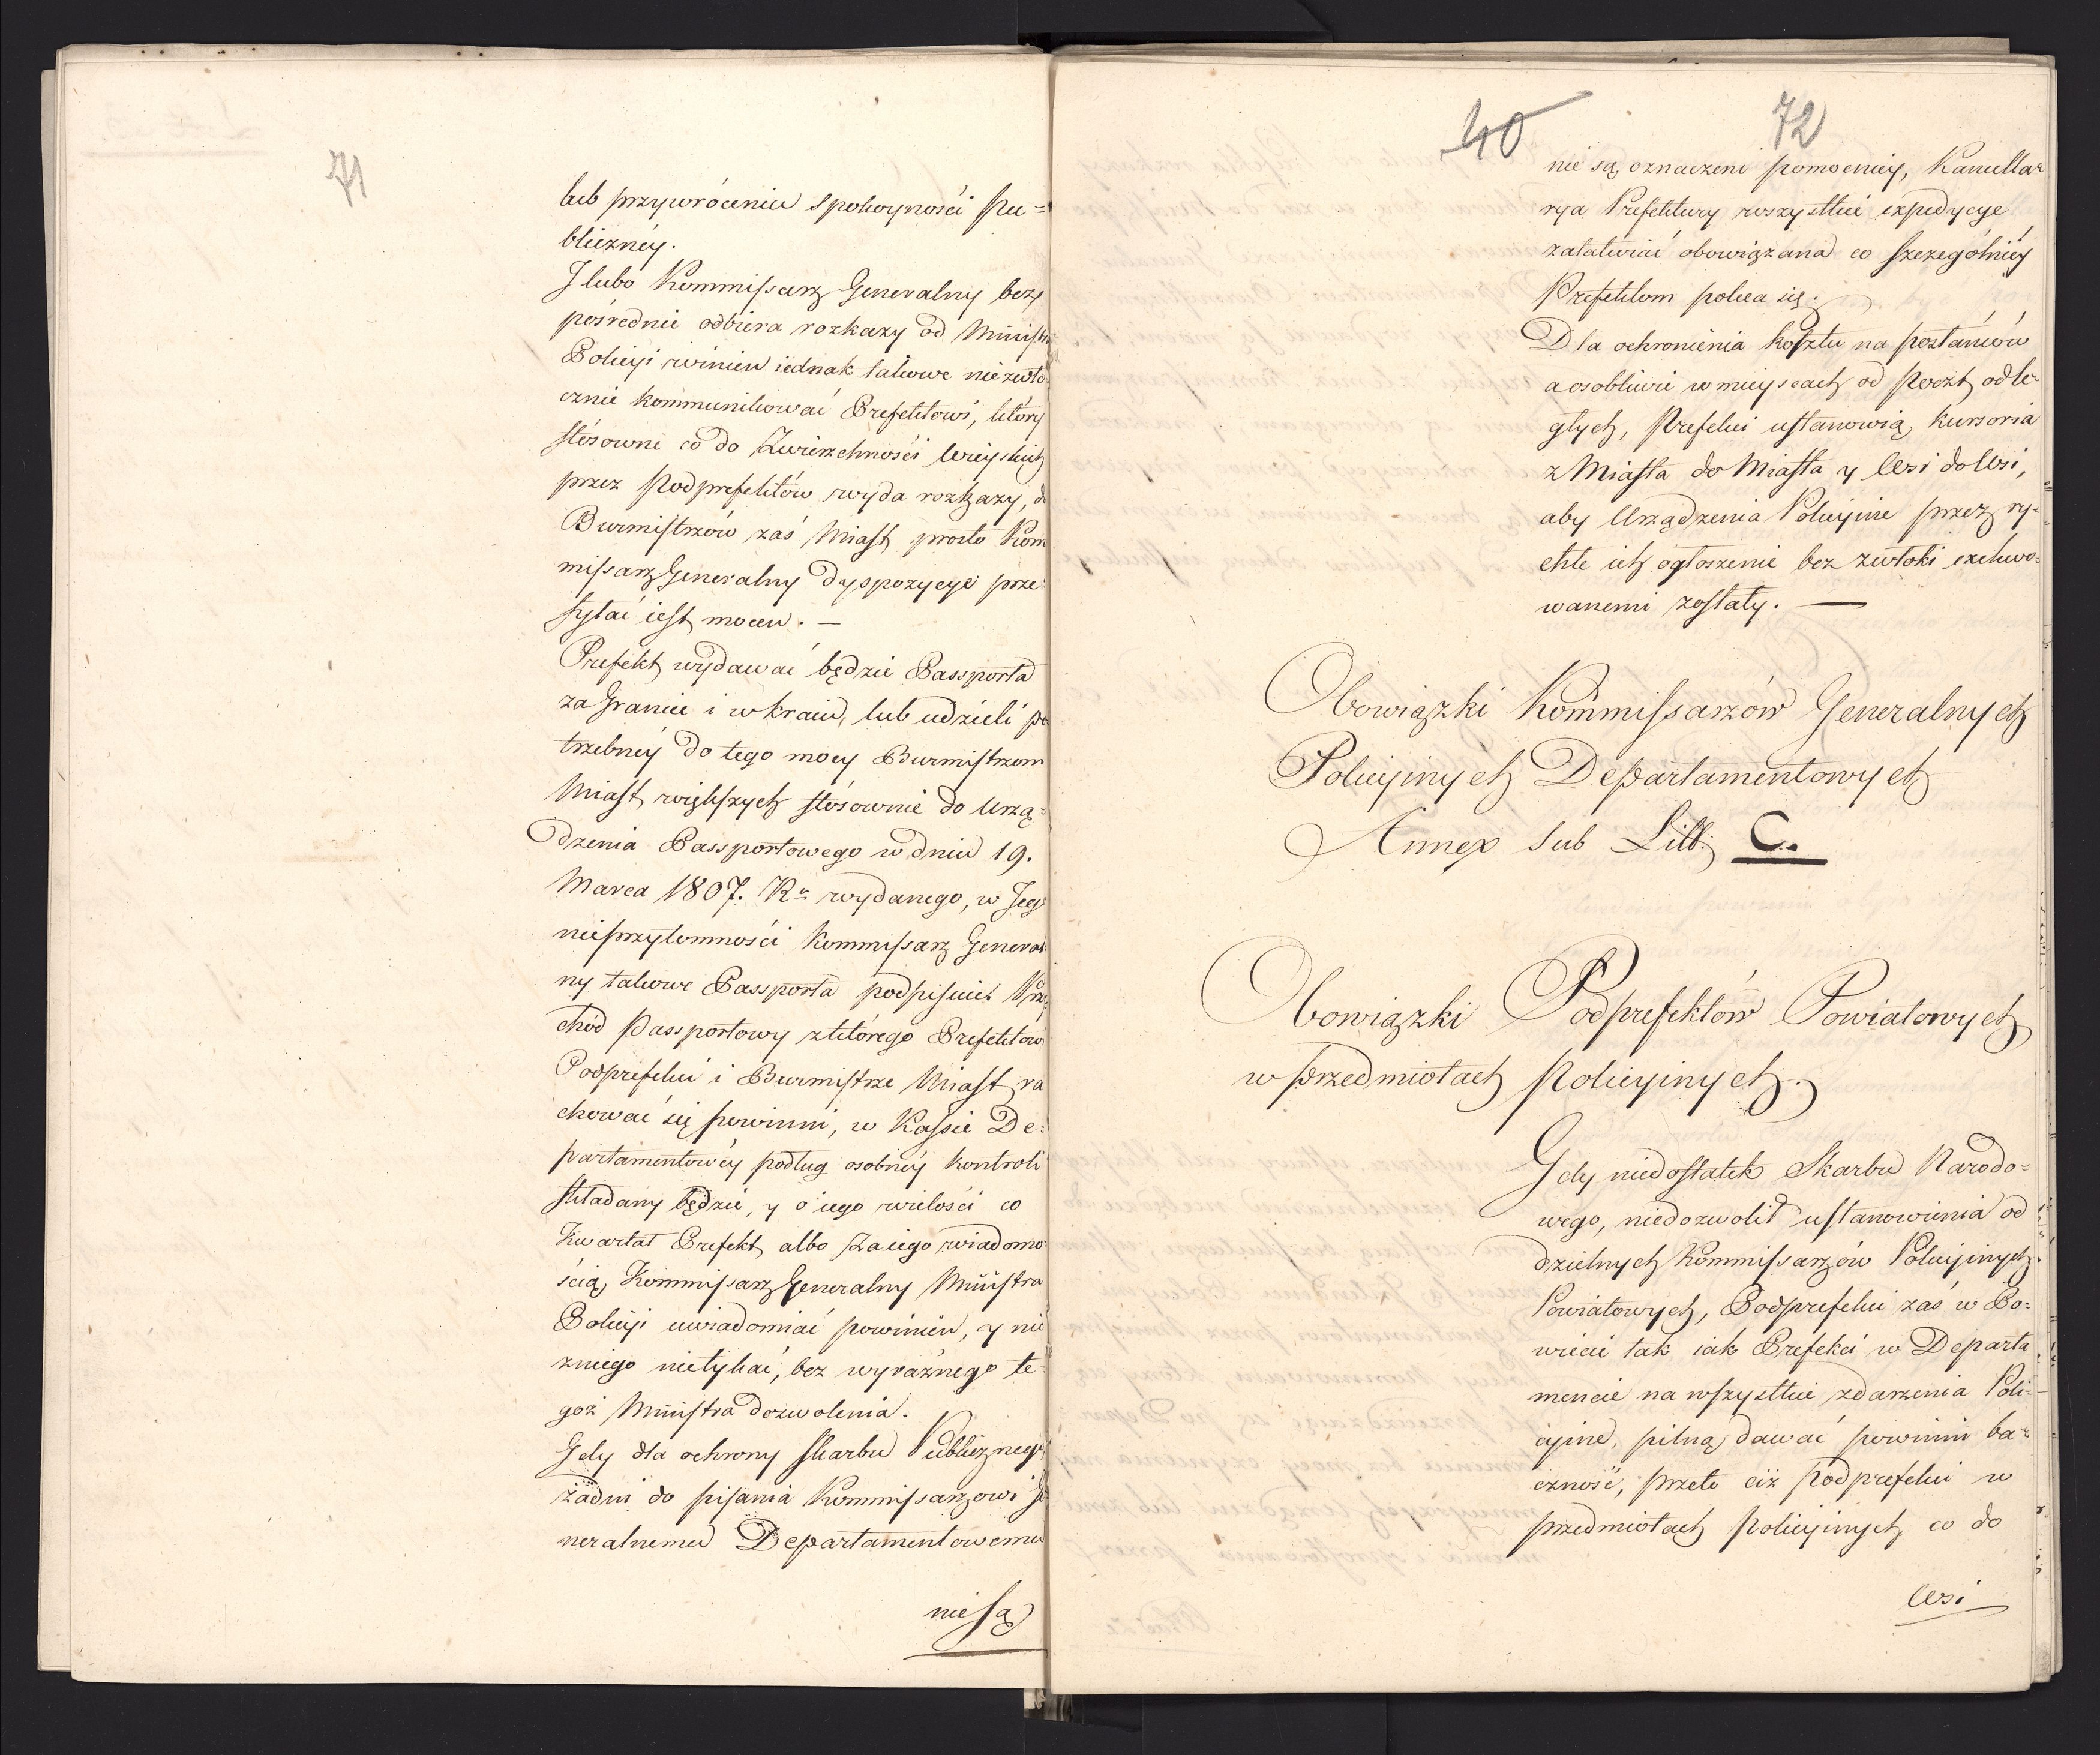 71
lub przywróceniu spokoyności Pu=
bliczney.
I lubo Kommissarz Generalny bez
pośrednie odbiera rozkazy od Minist
Policyi winien iednak takowe niezwło=
cznie kommunikować Prefektowi, który
stósownie co do Zwierzchności wieyskich
przez Podprefektów wyda rozkazy, d
Burmistrzów zaś Miast prosto Kom
missarz Generalny Dyspozycye prze
syłać iest mocen. —
Prefekt wydawać będzie Passporta
za Granice i w kraiu, lub udzieli po
trzebney do tego mocy Burmistrzom
Miast większych stósownie do Urzą=
dzenia Passportowego w dniu 19.
Marca 1807. Ru wydanego, w Jego
nieprzytomności Kommissarz General
ny takowe Passporta podpisuie. Przy
chód Passportowy z którego Prefektowi
Podprefekci i Burmistrze Miast ra
chować się powinni, w Kassie De=
partamentowéy podług osobnéy kontroli
składany będzie, y o iego wielości co
Kwartał Prefekt albo za iego wiadomo=
ścią, Kommissarz Generalny Ministra
Policyi uwiadomiać powinien, y nic
z niego nietykać, bez wyraźnego te=
goż Ministra dozwolenia.
Gdy dla ochrony Skarbu Publicznego
żadni do pisania Kommissarzowi Ge
neralnemu Departamentowemu
nie są
40 72
nie są oznaczeni pomocnicy, Kancella=
rya Prefektury wszystkie expedycye
załatwiać obowiązana co szczególniey
Prefektom poleca się.
Dla ochronienia kosztu na posłańców
a osobliwie w mieyscach od Poczt odle=
głych, Prefekci ustanowią kursoria
z Miasta do Miasta y Wsi do Wsi,
aby Urządzenia Policyine przez ry=
chłe ich ogłoszenie bez zwłoki exekwo=
wanemi zostały. —
Obowiązki Kommissarzów Generalnych
Policyinych Departamentowych
Annex sub Litt: C.
Obowiązki Podprefektów Powiatowych
w przedmiotach Policyinych.
Gdy niedostatek Skarbu Narodo=
wego, niedozwolił ustanowienia od
dzielnych Kommissarzów Policyinych
Powiatowych, Podprefekci zaś w Po=
wiecie tak iak Prefekci w Departa
mencie na wszystkie zdarzenia Poli=
cyine, pilną dawać powinni ba=
czność, przeto ciż Podprefekci w
przedmiotach Policyinych, co do
Wsi